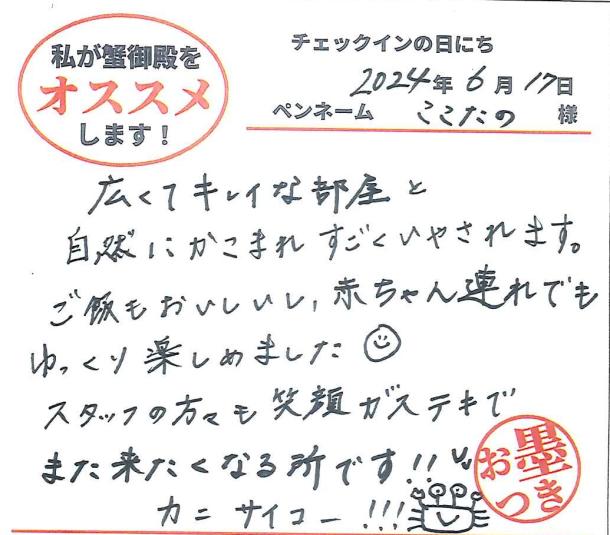 私が蟹御殿を
オススメ
します！
チェックインの日にち
2024年6月17日
ペンネーム ここたの 様
広くてキレイな部屋と
自然にかこまれすごくいやされます。
ご飯もおいしいし、赤ちゃん連れでも
ゆっくり楽しめました
スタッフの方々も笑顔がステキで
また来たくなる所です!!
カニ サイコー!!!
お墨
つき